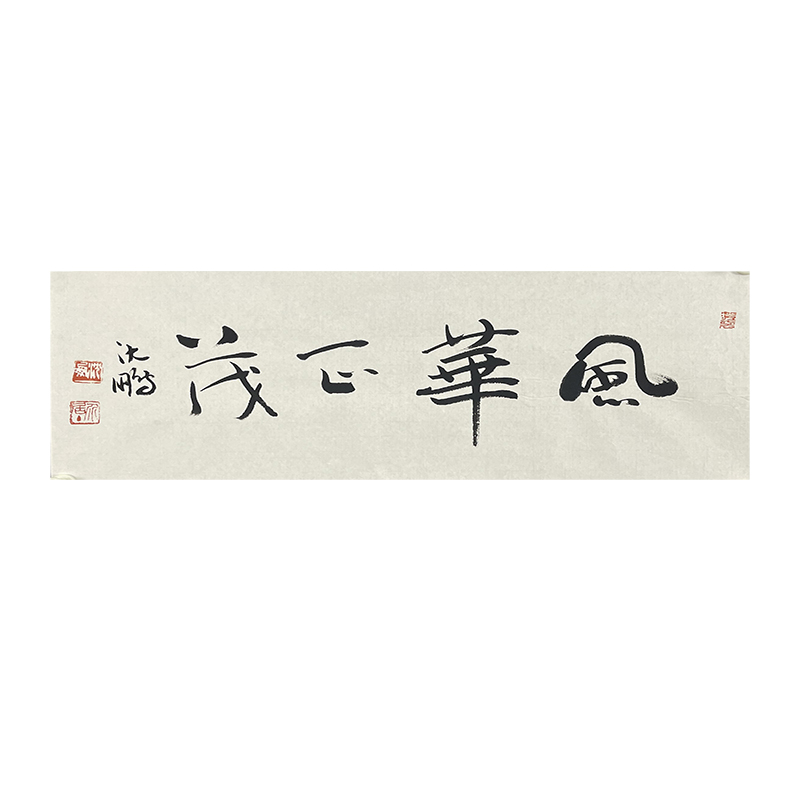 風華正茂
沈鵬